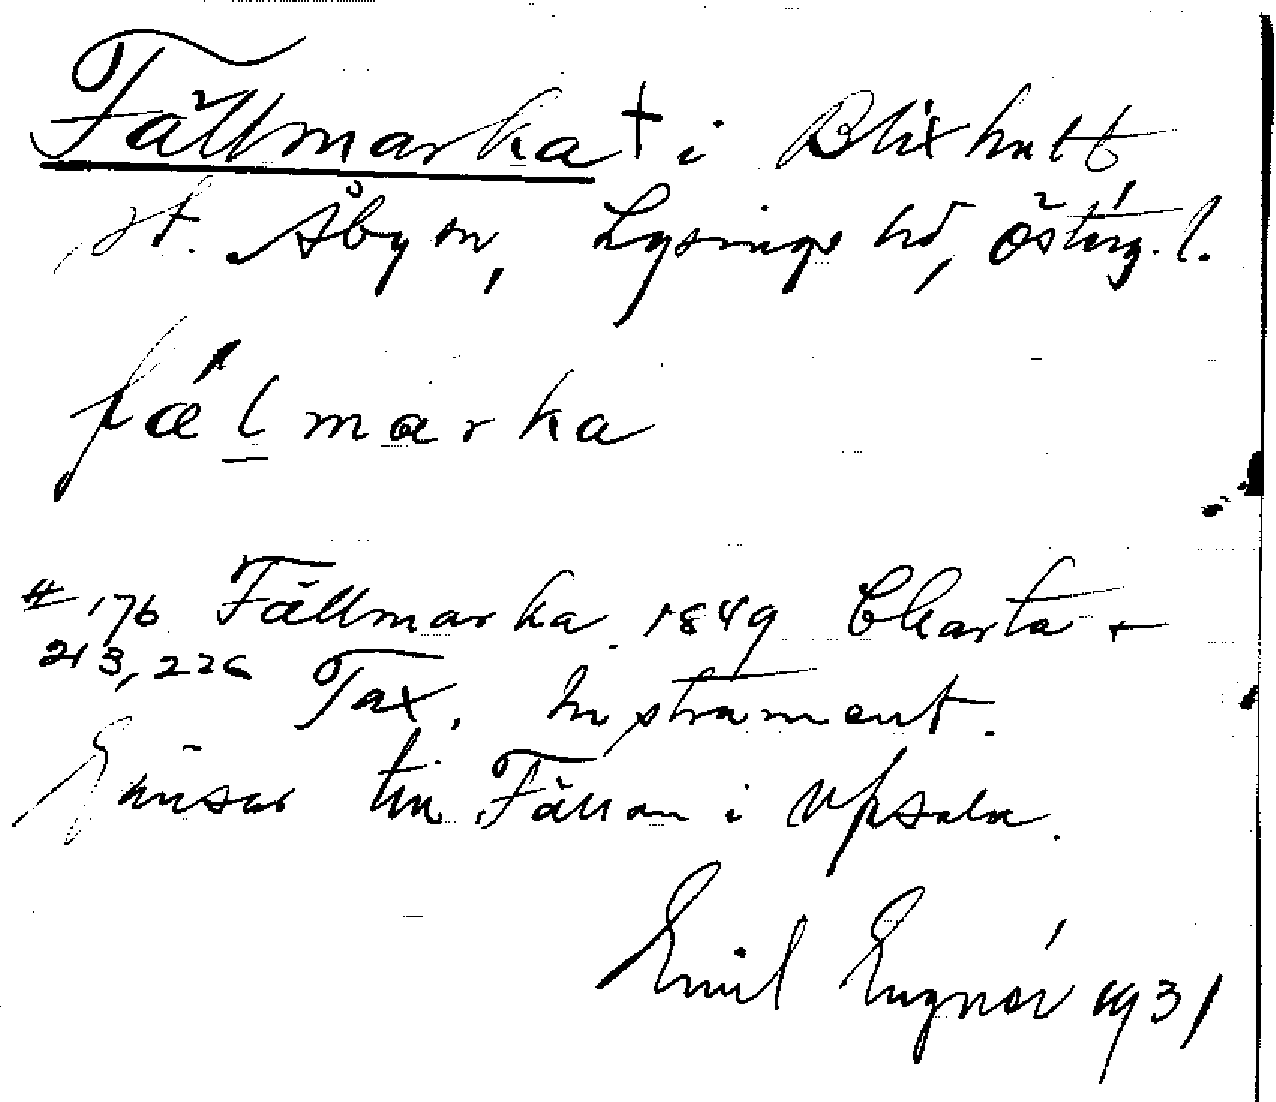 Fällmarka † i Blixhult
st. Åby sn, Lysings hd, Österg. l.
fǽlmarka
#176 Fällmarka 1849 Charta +
213, 226 Tax. Instrument.
Gränsar till Fällan i Upsala.
Emil Engnér 1931